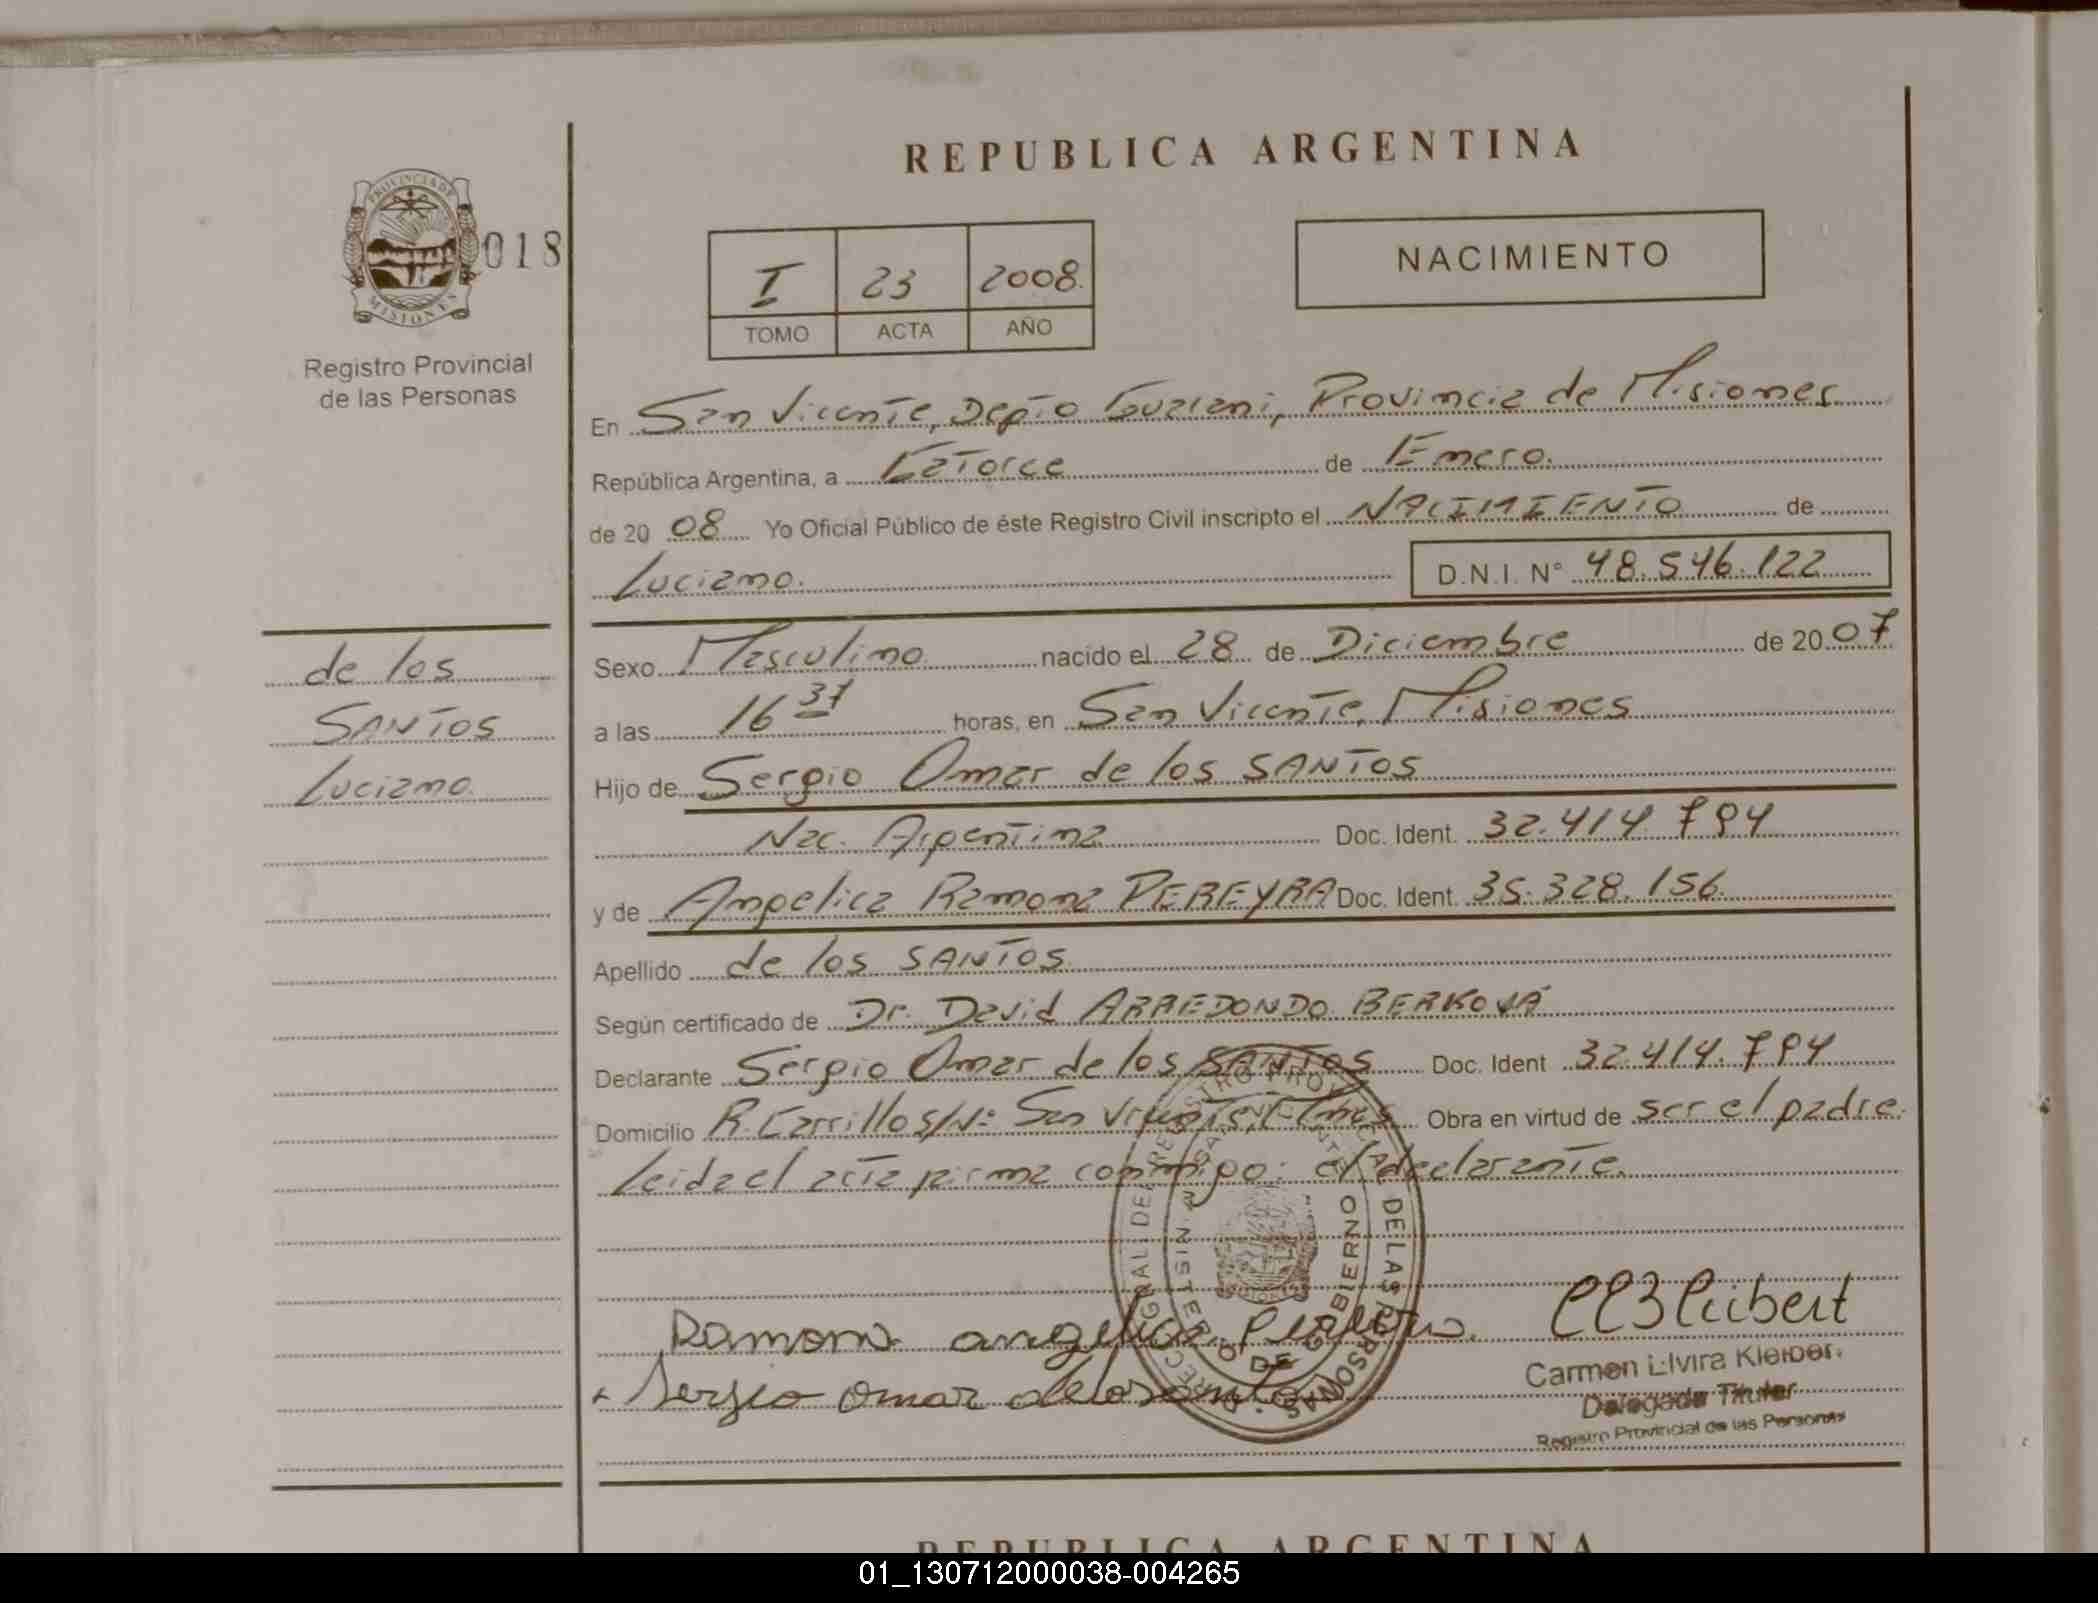 REPUBLICA ARGENTINA
PROVINCIA DE MISIONES
018
Registro Provincial
de las Personas
I 23 2008.
TOMO ACTA AÑO
NACIMIENTO
En San Vicente, Depto Guarani, Provincia de Misiones
República Argentina, a Catorce de Enero.
de 20 08 Yo Oficial Público de éste Registro Civil inscripto el NACIMIENTO de
Luciano. D.N.I. N° 48.546.122
de los
SANTOS
Luciano
Sexo Masculino nacido el 28 de Diciembre de 2007
a las 16 37 horas, en San Vicente, Misiones
Hijo de Sergio Omar de los SANTOS
Nac. Argentina Doc. Ident. 32.414.794
y de Angelica Ramona PEREYRA Doc. Ident. 35.328.156
Apellido de los SANTOS
Según certificado de Dr. David ARREDONDO BERKOVA
Declarante Sergio Omar de los SANTOS Doc. Ident 32.414.794
Domicilio R. Carrillo s/N° San Vicente, Obra en virtud de ser el padre.
Leida el acta firma conmigo: el declarante.
Ramona angelica Pereyra
Sergio omar delosantos
Carmen Elvira Kleiber
Delegada Titular
Registro Provincial de las Personas
REPUBLICA ARGENTINA
01_130712000038-004265